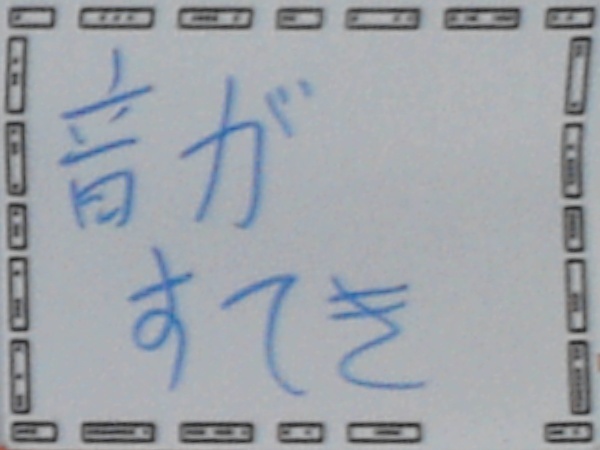 音が
すてき